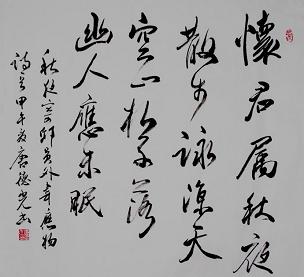 懷君屬秋夜
散步詠涼天
空山松子落
幽人應未眠
秋夜寄邱員外韋應物
詩句甲午夏唐德光書